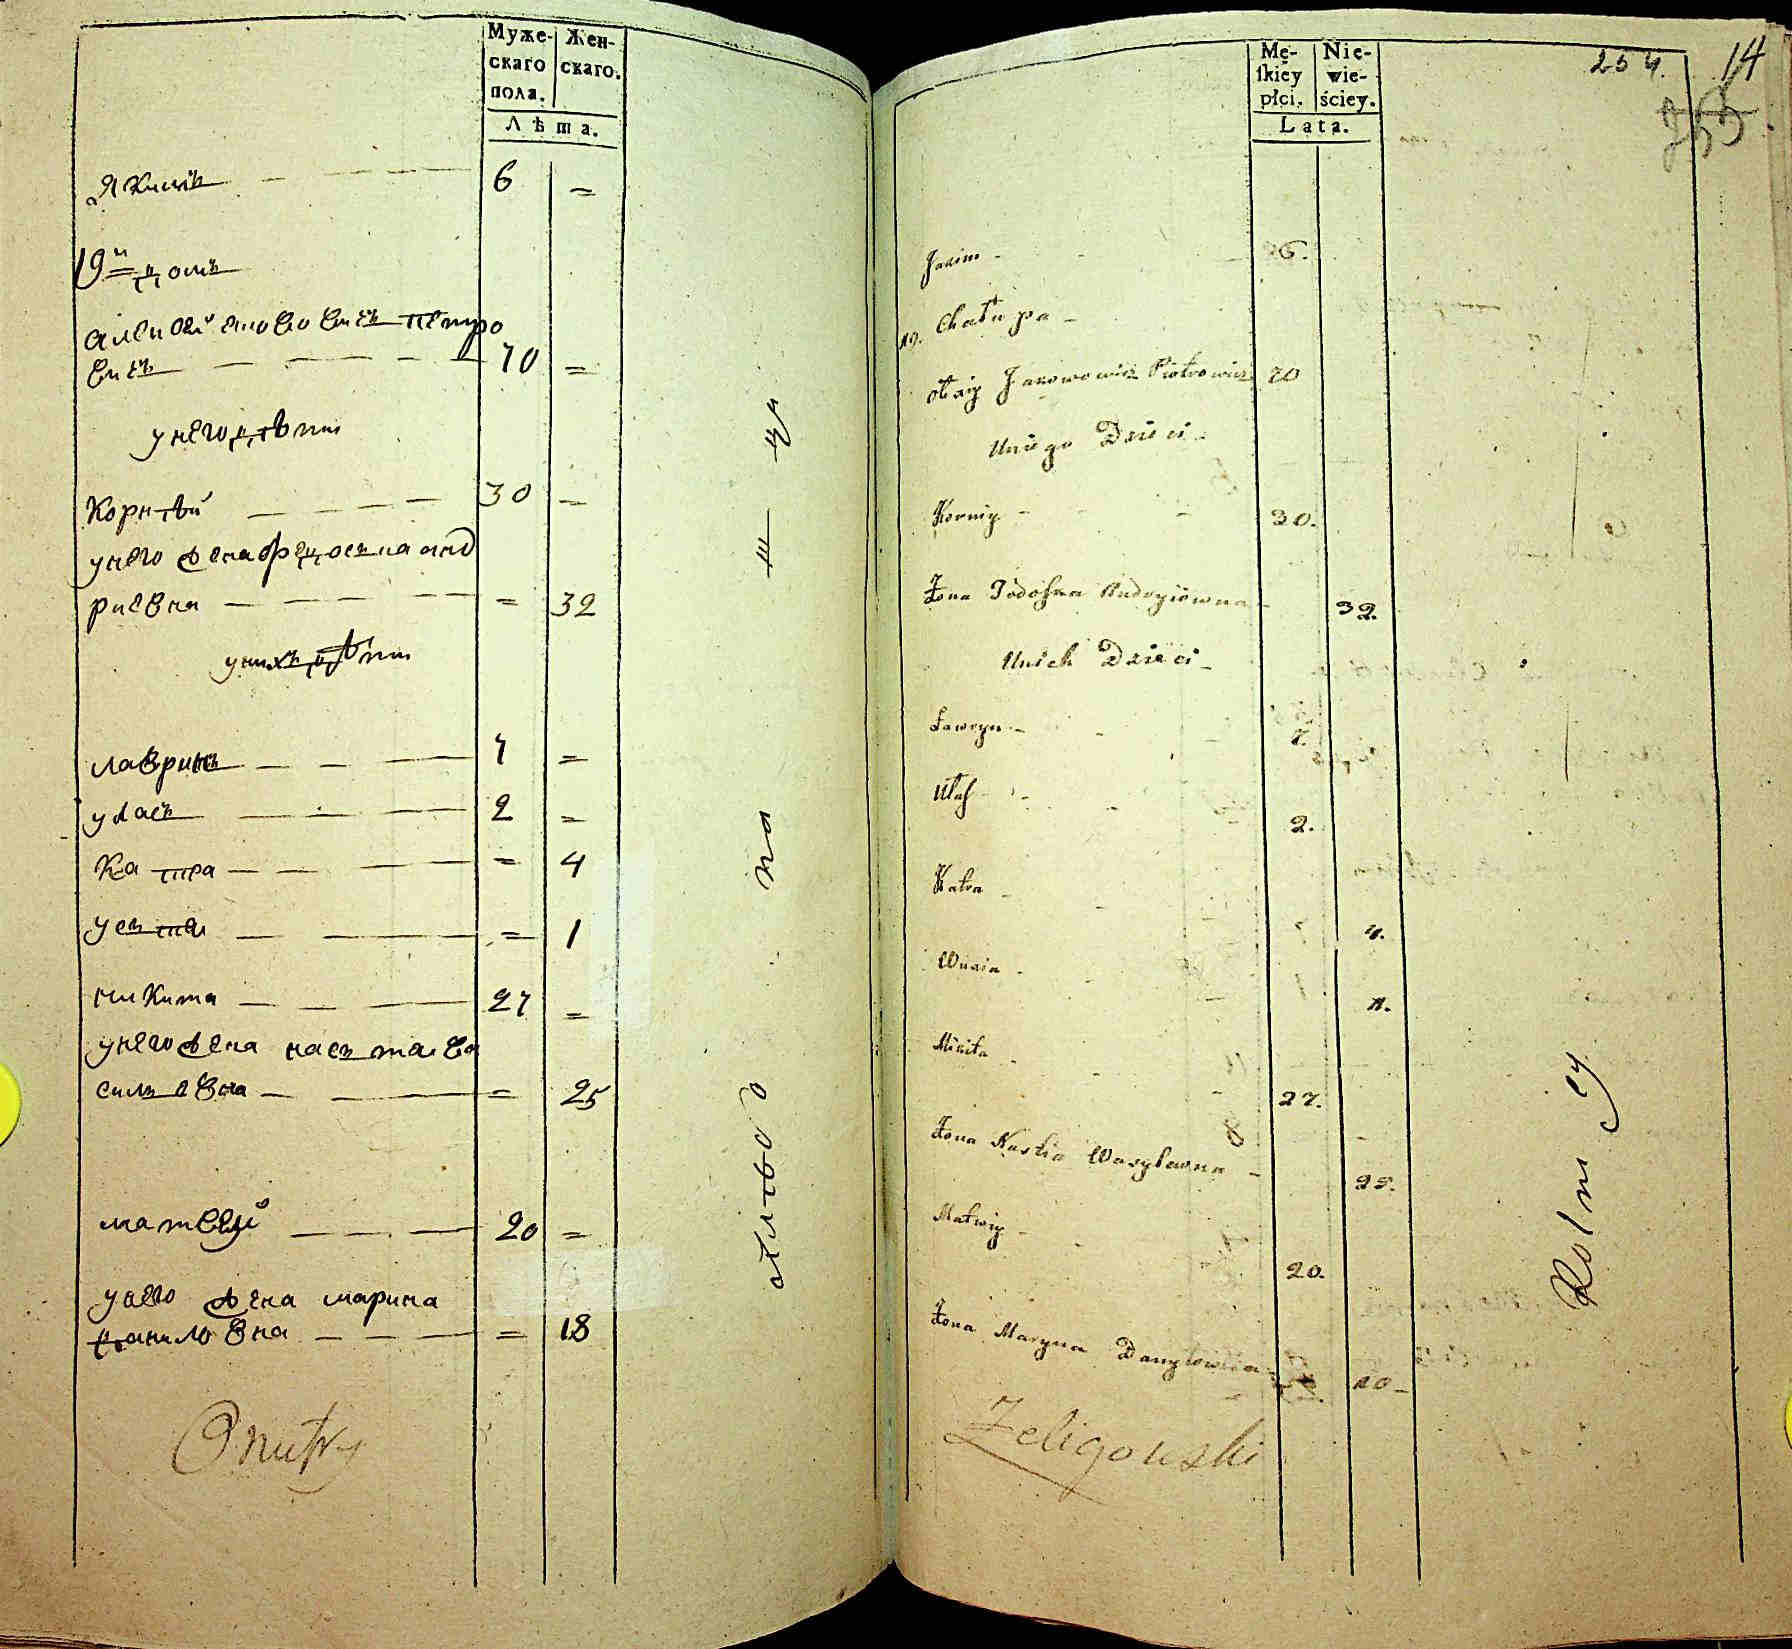 Муже-
скаго
пола.
Жен-
скаго.
Лѣта.
Якимъ 6 =
19й домъ
Алексѣй Петро
вичъ 70 =
у него дѣти
Корнѣй 30 =
у него жена Федосья Анд
риевна = 32
у нихъ дѣти
лавринъ 7 =
уласъ 2 =
Катра = 4
устья = 1
никита 27 =
у него жена настася Ва
силевна = 25
матвей 20 =
у него жена марина
даниловна = 18
Męs-
kiey
płci.
Nie-
wie-
ściey.
Lata.
254. 14
Jakim 6.
19. Chałupa
Jakowowicz Piotrowicz 70
U niego Dzieci
Korniy 30.
Żona Fodoska Andryiowna 32.
U nich Dzieci
Ławryn 7.
Ułas 2.
Katra 4.
1.
Mikita 27.
Żona Nastia Wasylewna 25.
Matwiy 20.
Żona Maryna Danyłowna
Rolnicy
Żeligowski